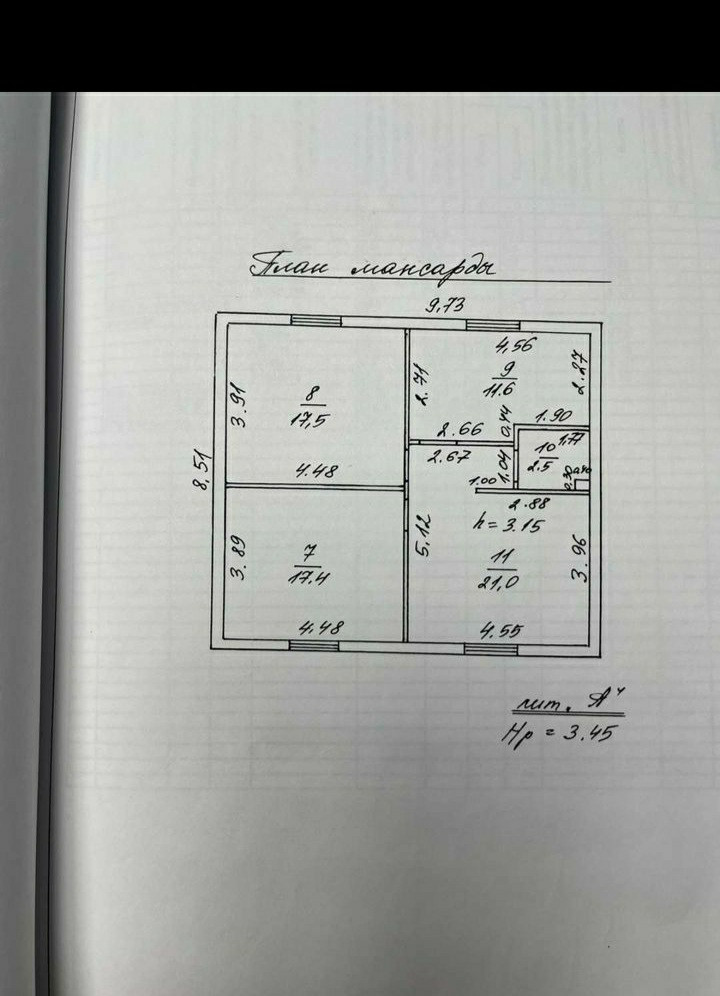 План мансарды
9,73
4,56
9
11.6
2.71
2.27
3.91
8
17,5
0,44
1.90
2.66
2.67
1,04
10
2.5
1,77
8,51
4.48
1.00
0,30
0,40
2.88
h = 3.15
5,12
11
21,0
3.96
3.89
7
17.4
4.48
4.55
лит. А⁴
Нр = 3.45